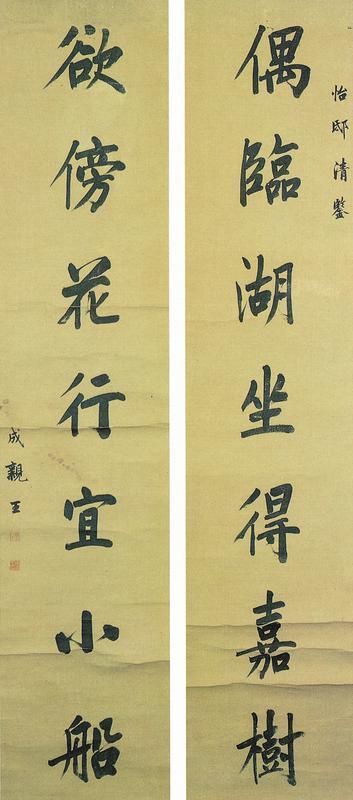 怡邸清鑒
偶臨湖坐得嘉樹
欲傍花行宜小船
成親王